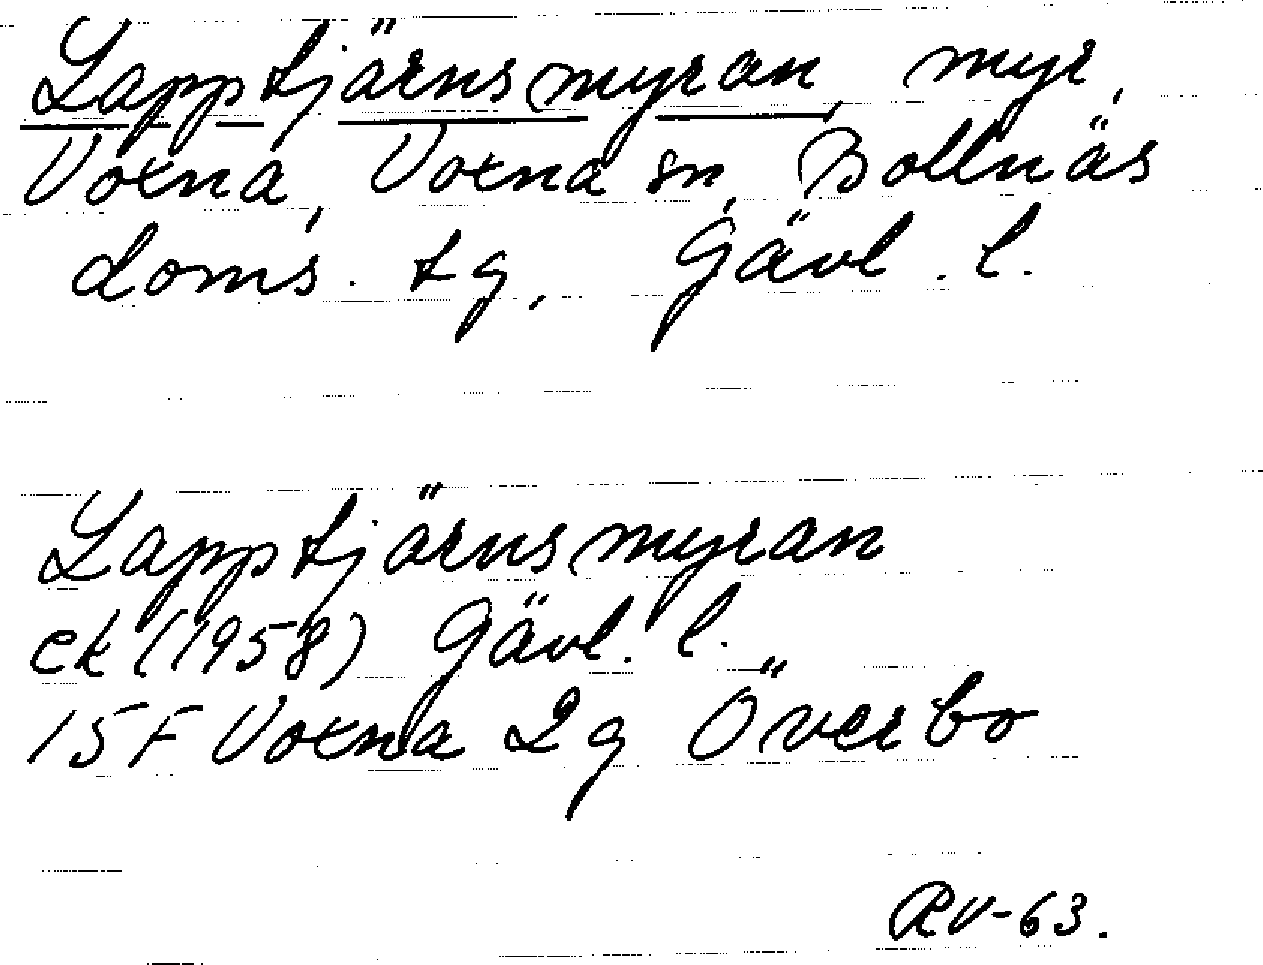 Lapptjärnsmyran, myr,
Voxna, Voxna sn, Bollnäs
doms. tg, Gävl. l.
Lapptjärnsmyran
ek (1958) Gävl. l.
15F Voxna 2g Överbo
RV-63.